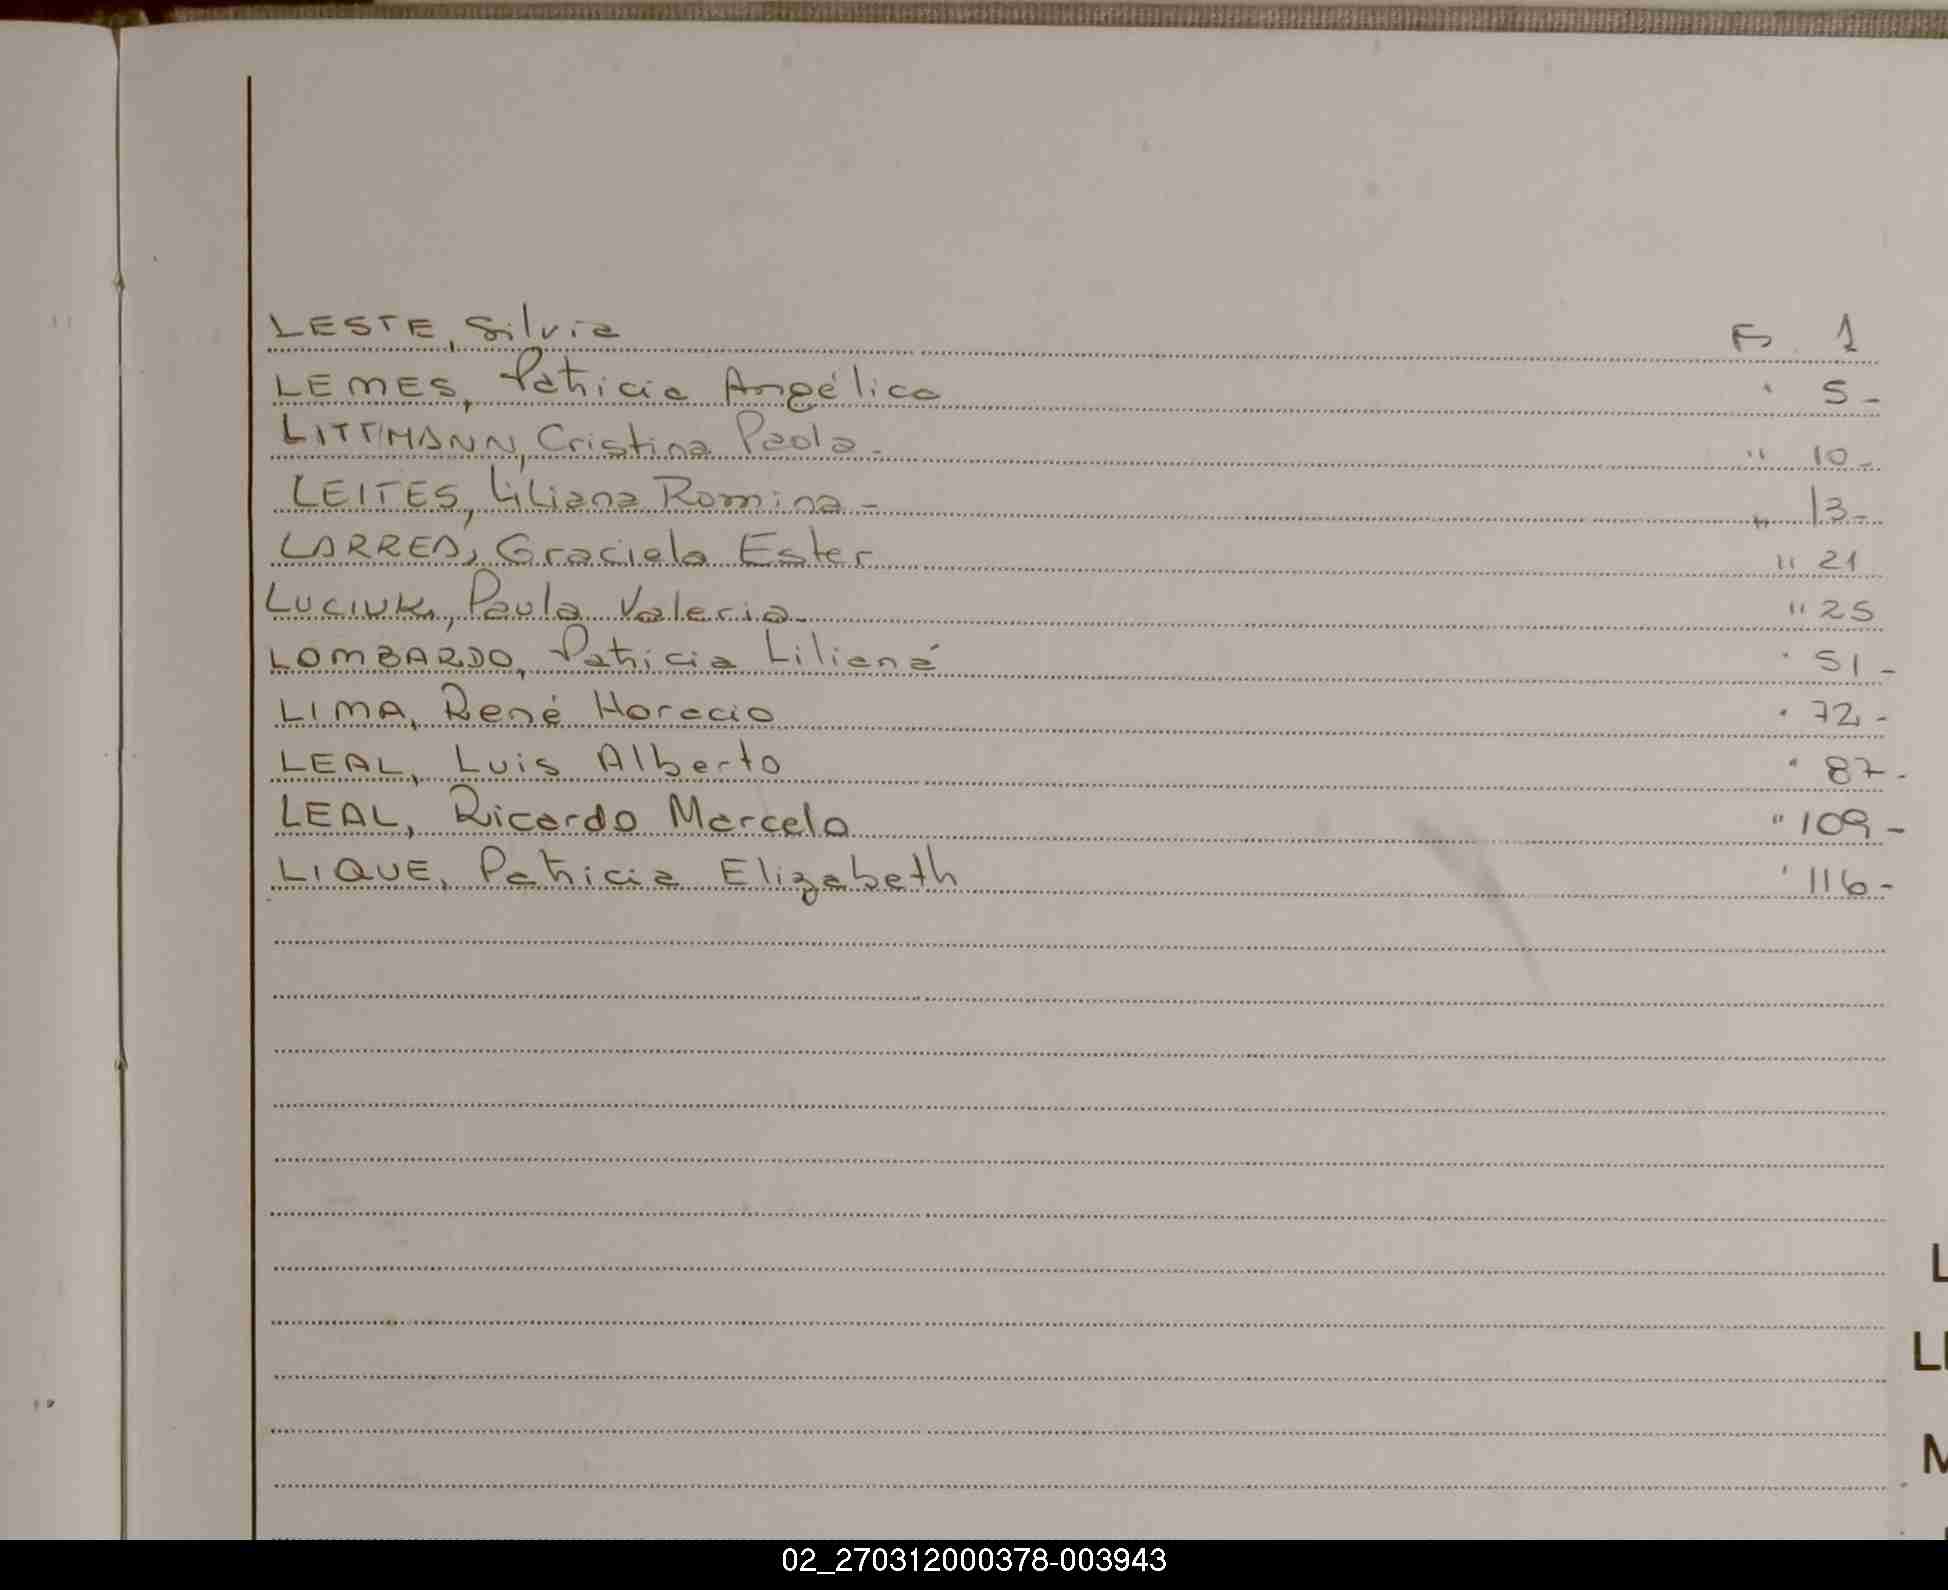 LESTE, Silvia Fs. 1
LEMES, Patricia Angélica " 5-
LITTMANN, Cristina Paola- " 10-
LEITES, Liliana Romina- " 13-
LARREA, Graciela Ester " 21
LUCIUK, Paula Valeria- " 25
LOMBARDO, Patricia Liliana " 51-
LIMA, René Horacio " 72-
LEAL, Luis Alberto " 87-
LEAL, Ricardo Marcelo " 109-
LIQUE, Patricia Elizabeth " 116-
L
LL
M
02_270312000378-003943